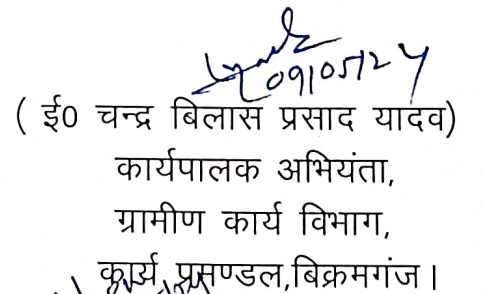 09/05/24
( ई0 चन्द्र बिलास प्रसाद यादव)
कार्यपालक अभियंता,
ग्रामीण कार्य विभाग,
कार्य प्रमण्डल,बिक्रमगंज।